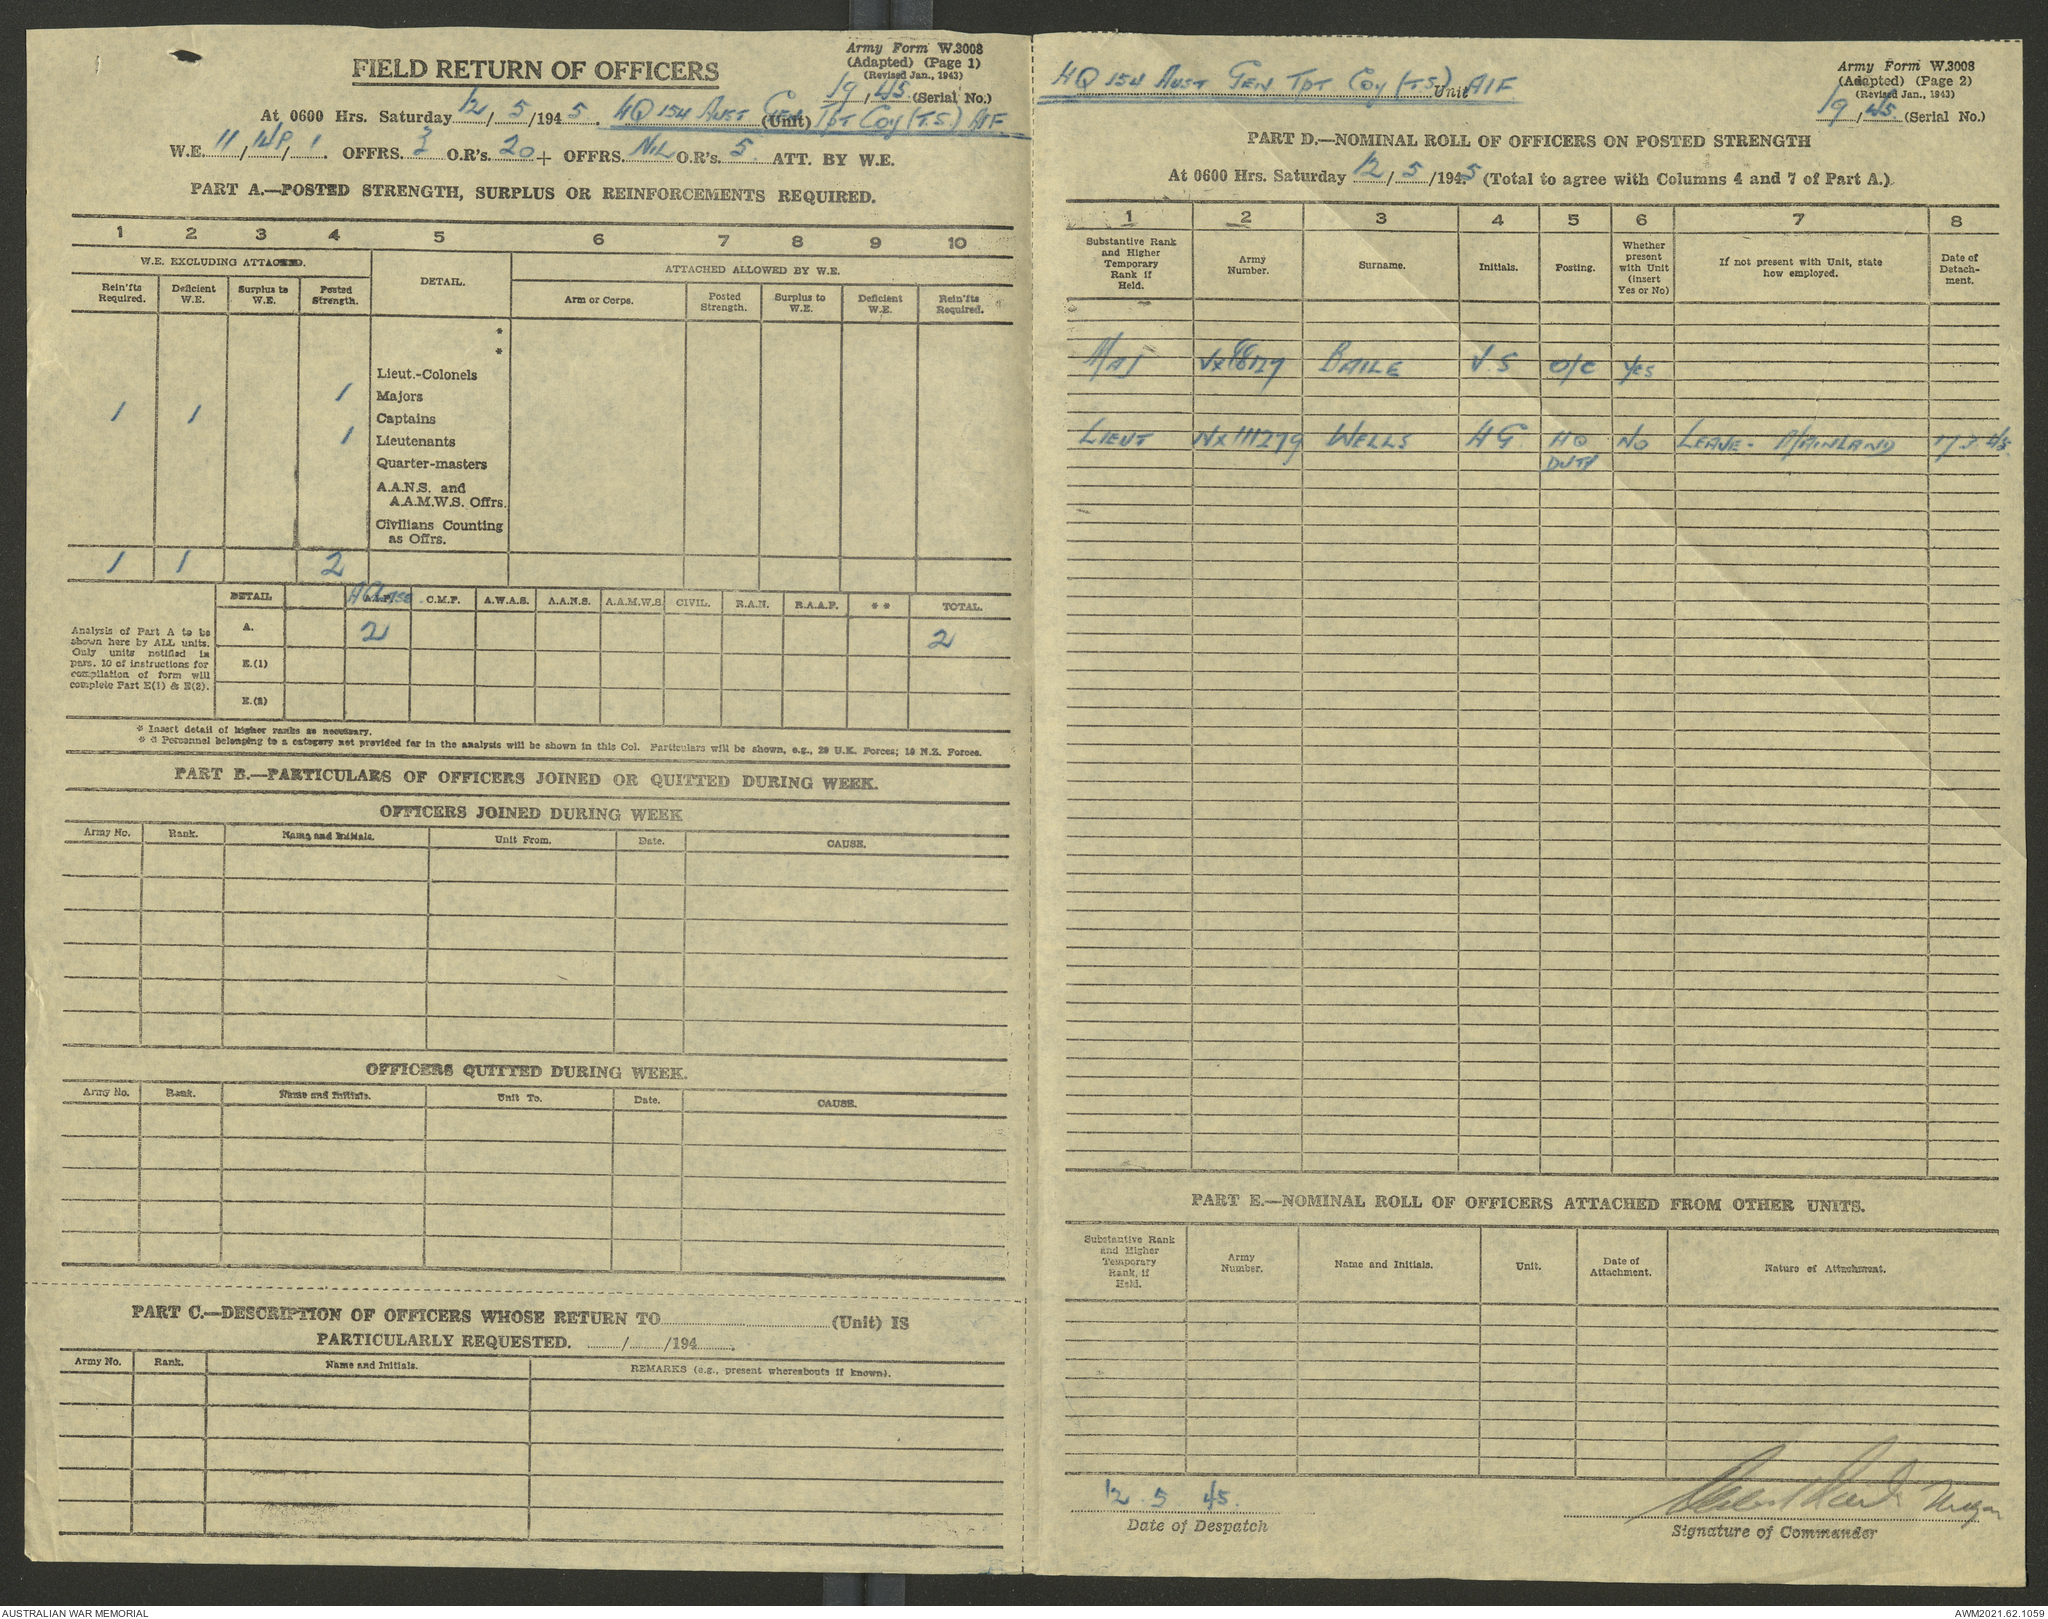 Army Form W.3008
(Adapted) (Page 1)
(Revised Jan., 1943)
19/45 (Serial No.)
FIELD RETURN OF OFFICERS
At 0600 Hrs. Saturday 12/5/1945. HQ 154 Aust Gen (Unit) Tpt Coy (T.S.) AIF
W.E. 11/14P/1. OFFRS. 3 O.R's. 20 + OFFRS. NIL O.R's. 5 ATT. BY W.E.
PART A.—POSTED STRENGTH, SURPLUS OR REINFORCEMENTS REQUIRED.
1 2 3 4 5 6 7 8 9 10
W.E. EXCLUDING ATTACHED. DETAIL. ATTACHED ALLOWED BY W.E.
Rein'fts Required. Deficient W.E. Surplus to W.E. Posted Strength. Arm or Corps. Posted Strength. Surplus to W.E. Deficient W.E. Rein'fts Required.
*
*
Lieut.-Colonels
1 Majors
1 1 Captains
1 Lieutenants
Quarter-masters
A.A.N.S. and
A.A.M.W.S. Offrs.
Civilians Counting
as Offrs.
1 1 2
DETAIL A.I.F. C.M.F. A.W.A.S. A.A.N.S. A.A.M.W.S. CIVIL. R.A.N. R.A.A.F. * * TOTAL.
Analysis of Part A to be
shown here by ALL units.
Only units notified in
para. 10 of instructions for
compilation of form will
complete Part E(1) & E(2).
A. 2 2
E.(1)
E.(2)
* Insert detail of higher ranks as necessary.
* * Personnel belonging to a category not provided for in the analysis will be shown in this Col. Particulars will be shown, e.g., 29 U.K. Forces; 10 N.Z. Forces.
PART B.—PARTICULARS OF OFFICERS JOINED OR QUITTED DURING WEEK.
OFFICERS JOINED DURING WEEK
Army No. Rank. Name and Initials. Unit From. Date. CAUSE.
OFFICERS QUITTED DURING WEEK.
Army No. Rank. Name and Initials. Unit To. Date. CAUSE.
PART C.—DESCRIPTION OF OFFICERS WHOSE RETURN TO (Unit) IS
PARTICULARLY REQUESTED. / /194 .
Army No. Rank. Name and Initials. REMARKS (e.g., present whereabouts if known).
HQ 154 Aust Gen Tpt Coy (T.S.) Unit AIF
Army Form W.3008
(Adapted) (Page 2)
(Revised Jan., 1943)
19/45. (Serial No.)
PART D.—NOMINAL ROLL OF OFFICERS ON POSTED STRENGTH
At 0600 Hrs. Saturday 12/5/1945 (Total to agree with Columns 4 and 7 of Part A.)
1 2 3 4 5 6 7 8
Substantive Rank and Higher Temporary Rank if Held. Army Number. Surname. Initials. Posting. Whether present with Unit (insert Yes or No) If not present with Unit, state how employed. Date of Detach-ment.
MAJ BAILE V.S O/C Yes
LIEUT NX111279 WELLS HG HQ DUTY NO LEAVE - MAINLAND
PART E.—NOMINAL ROLL OF OFFICERS ATTACHED FROM OTHER UNITS.
Substantive Rank and Higher Temporary Rank, if Held. Army Number. Name and Initials. Unit. Date of Attachment. Nature of Attachment.
12. 5 45.
Date of Despatch
Signature of Commander
AUSTRALIAN WAR MEMORIAL
AWM2021.62.1059